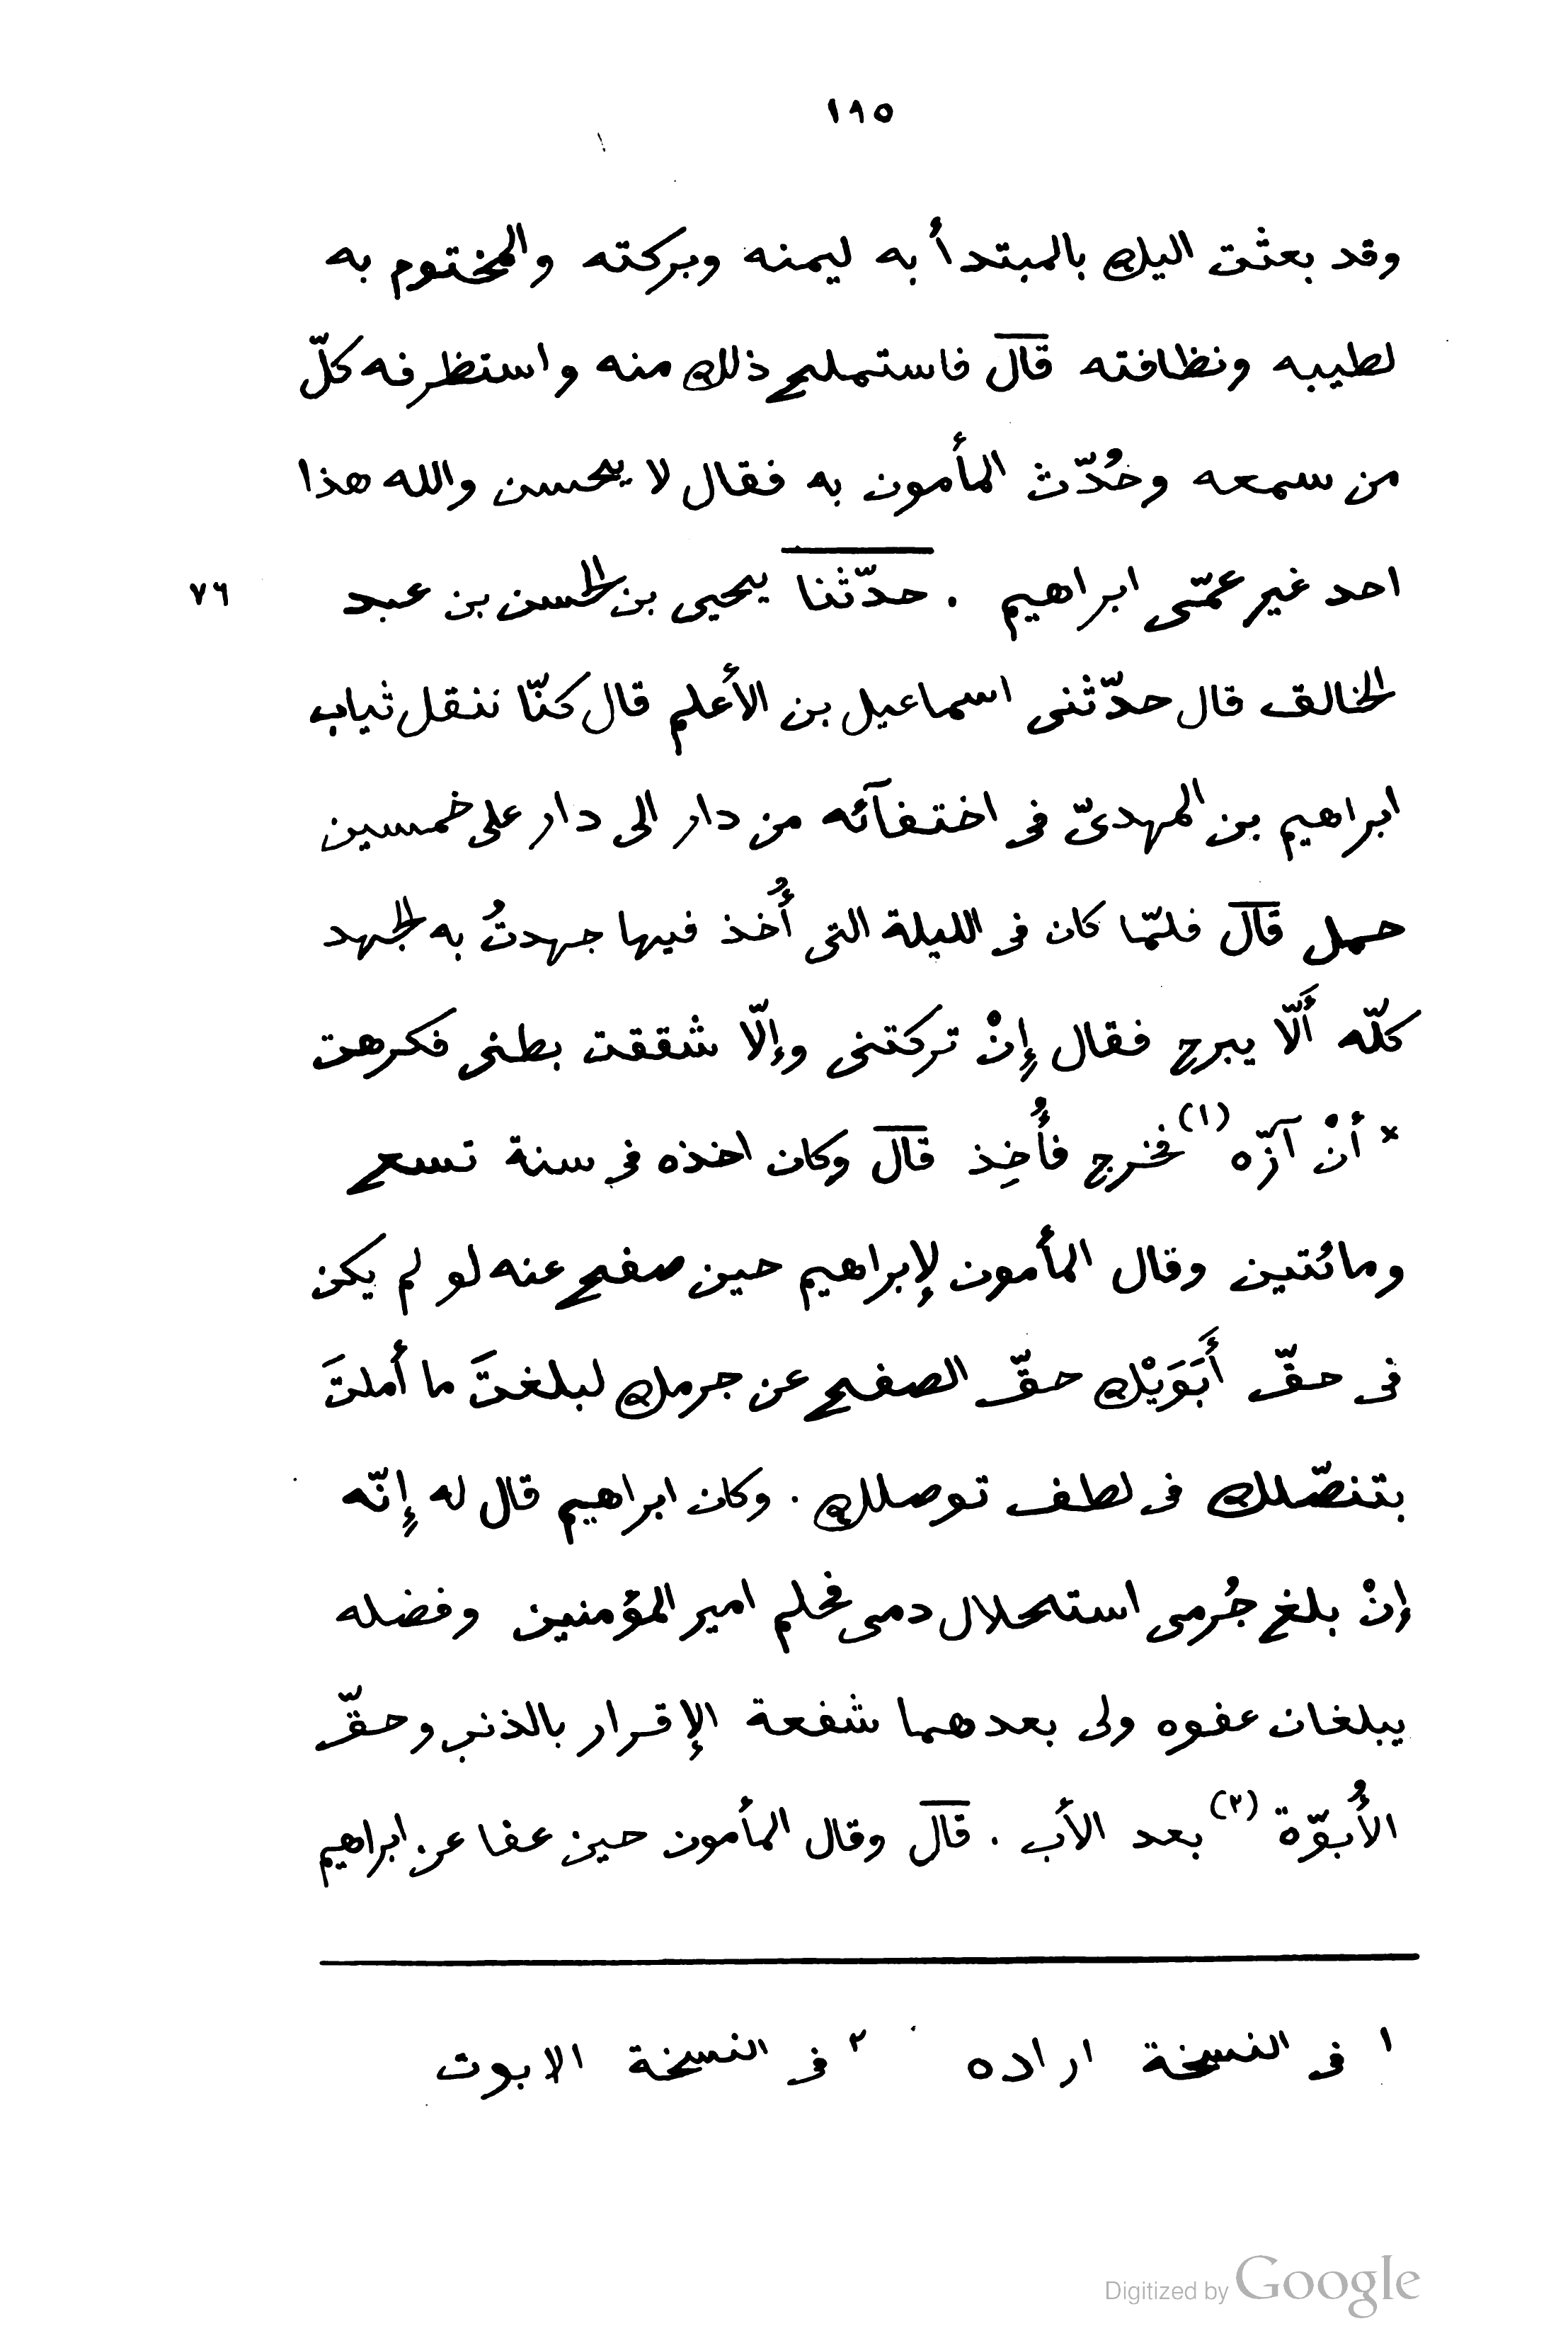 ١٩٥
وقد بعثت اليك بالمبتدأ به ليمنه وبركته والمختوم به
لطيبه ونظافته قال فاستملح ذلك منه واستظرفه كلّ
من سمعه وحُدّث المأمون به فقال لا يحسن والله هذا
احد غير عمّى ابراهيم . حدّثنا يحيى بن الحسن بن عبد ٧٦
الخالق قال حدّثنى اسماعيل بن الأعلم قال كنّا ننقل ثياب
ابراهيم بن المهدىّ فى اختفآئه من دار الى دار على خمسين
حمل قال فلمّا كان فى الليلة التى أُخذ فيها جهدتُ به الجهد
كلّه أَلّا يبرح فقال إِنْ تركتنى وإلّا شققت بطنى فكرهت
* أنْ آزّه (١) فخرج فأُخِذ قال وكان اخذه فى سنة تسع
ومائتين وقال المأمون لإبراهيم حين صفح عنه لو لم يكن
فى حقّ أَبَوَيْك حقّ الصفح عن جرمك لبلغتَ ما أملتَ
بتنصّلك فى لطف توصلك . وكان ابراهيم قال له إِنّه
إنْ بلغ جُرمى استحلال دمى فحلم امير المؤمنين وفضله
يبلغان عفوه ولى بعدهما شفعة الإقرار بالذنب وحقّ
الأُبوّة (٢) بعد الأب . قال وقال المأمون حين عفا عن ابراهيم
١ فى النسخة اراده ٢ فى النسخة الابوت
Digitized by Google